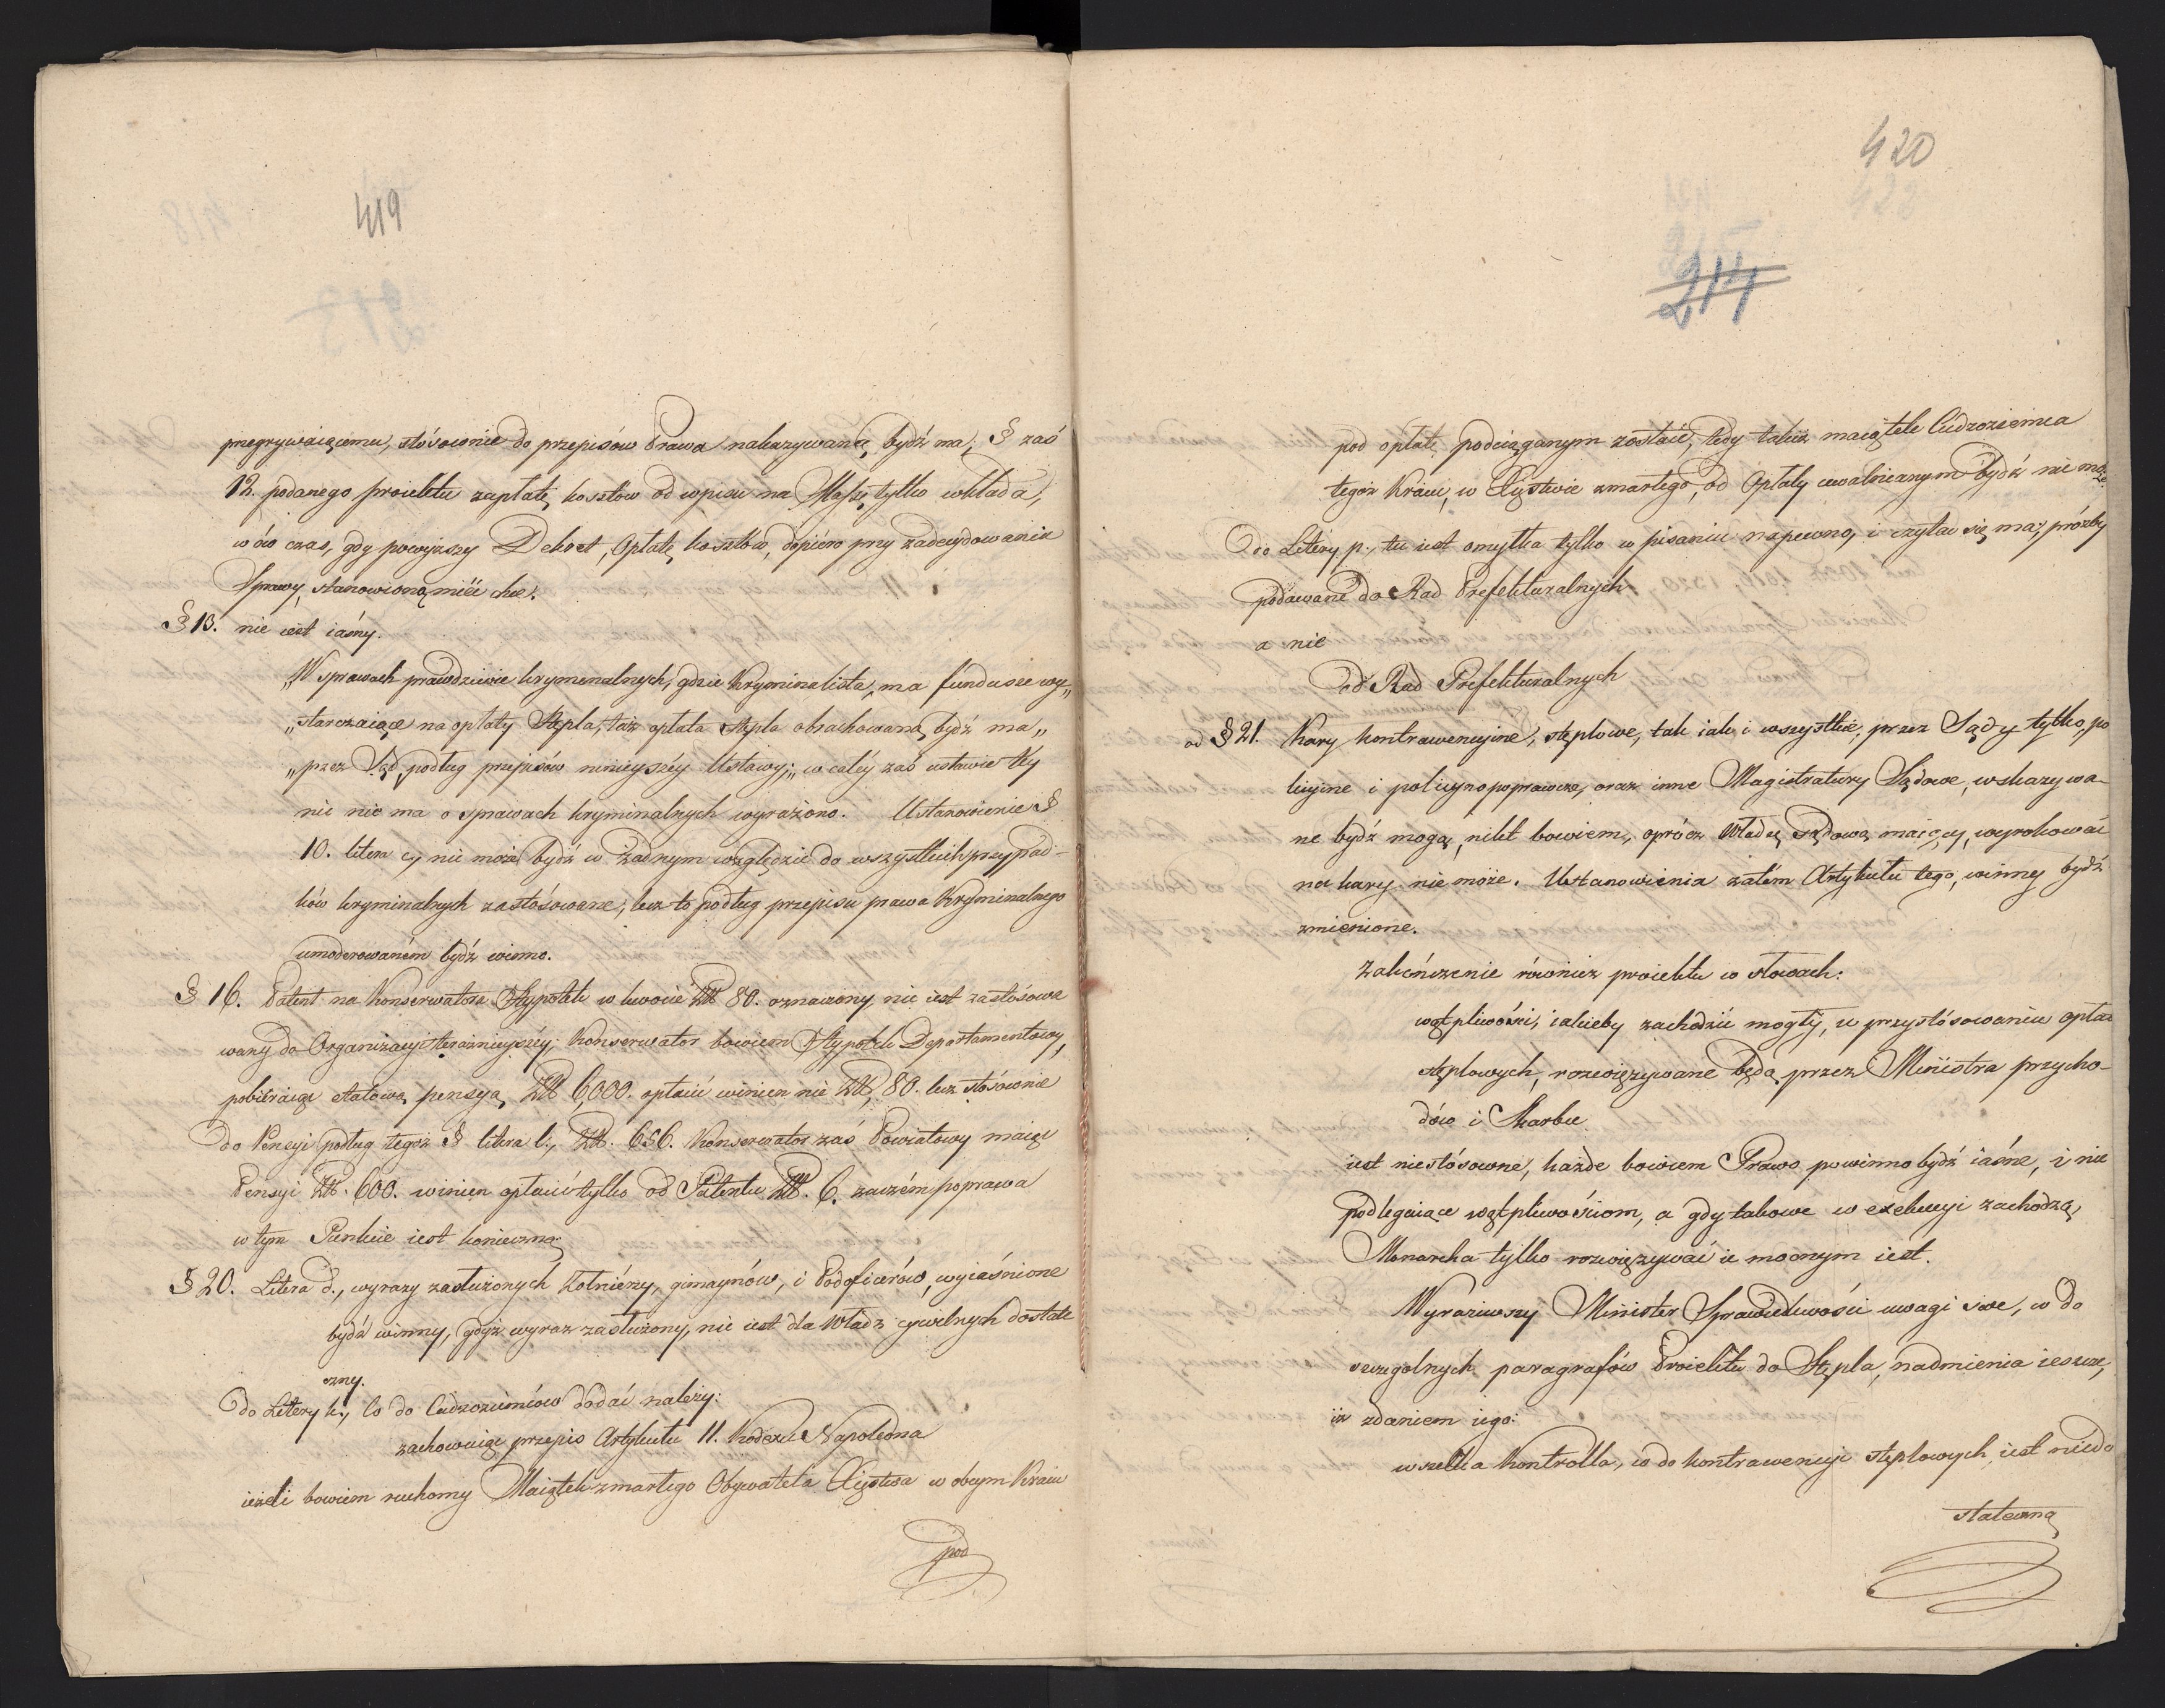 419
przegrywaiącemu, stósownie do przepisów Prawa nakazywaną bydź ma; § zaś
12. podanego proiektu zapłatę kosztów od wpisu na Massę tylko wkłada,
w ów czas, gdy powyższy Dekret, Opłatę kosztów, dopiéro przy zadecydowaniu
Sprawy, stanowioną mieć chce.
§ 13. nie iest iasny.
„W sprawach prawdziwie kryminalnych, gdzie Kryminalista, ma fundusze wy„
„starczaiące na opłaty Stępla, taż opłata stępla obrachowaną bydź ma„
„przez Sąd, podług przepisów ninieyszéy Ustawy;„ w całéy zaś ustawie téy
nic nie ma o sprawach kryminalnych wyrażono. Ustanowienie §
10. litera c, nie może bydź w żadnym względzie do wszystkich przypad-
ków kryminalnych zastósowane, lecz to podług przepisu prawa Kryminalnego
umoderowaném bydź winno.
§ 16. Patent na Konserwatora Hypotek w kwocie Zł 80. oznaczony, nie iest zastósowa
wany do Organizacyi teraźnieyszéy; Konserwator bowiem Hypotek Departamentowy,
pobieraiąc etatową pensyą, Zł 6,000. opłacić winien nie Zł, 80. lecz stósownie
do Pensyi podług tegoż § litera l., Zł. 656. Konserwator zaś Powiatowy maiąc
Pensyi Zł. 600. winien opłacić tylko od Patentu Zł. 6. zaczém poprawa
w tym Punkcie iest konieczną.
§ 20. Litera d., wyrazy zasłużonych żołniérzy, gimaynów, i Podoficérów, wyiaśnione
bydź winny, gdyż wyraz zasłużony, nie iest dla Władz cywilnych dostate
czny.
do Litery k., Co do Cudzoziemców dodać należy:
zachowuiąc przepis Artykułu 11. Kodexu Napoleona
ieżeli bowiem ruchomy Maiątek zmarłego Obywatela Xięstwa w obcym Kraiu
pod
420
214
pod opłatę podciąganym zostaie, tedy takiż maiątek Cudzoziemca
tegoż Kraiu, w Xięstwie zmarłego, od Opłaty uwalnianym bydź nie mo
że
Do Litery p. tu iest omyłka tylko w pisaniu napewno, i czytać się ma; prózby
podawane do Rad Prefekturalnych
a nie
od Rad Prefekturalnych
ad § 21. Kary kontrawencyine, stęplowe, tak iak i wszystkie, przez Sądy tylko, po
licyine i policyino poprawcze, oraz inne Magistratury Sądowe, wskazywa-
ne bydź mogą, nikt bowiem, oprócz Władzę sądową maiący, wyrokować
na kary nie może. Ustanowienia zatém Artykułu tego, winny bydź
zmienione.
Zakończenie również proiektu w słowach:
wątpliwości, iakieby zachodzić mogły, w przystósowaniu opłat
stęplowych, rozwiązywane będą przez Ministra przycho-
dów i Skarbu.
iest niestósowne, każde bowiem Prawo powinno bydź iasne, i nie
podlegaiące wątpliwościom, a gdy takowe w exekucyi zachodzą,
Monarcha tylko rozwiązywać ie mocnym iest.
Wyraziwszy Minister Sprawiedliwości uwagi swe, co do
szczególnych paragrafów Proiektu do Stępla, nadmienia ieszcze,
iż zdaniem iego:
wszelka Kontrolla, co do kontrawencyi stęplowych, iest niedo
stateczną